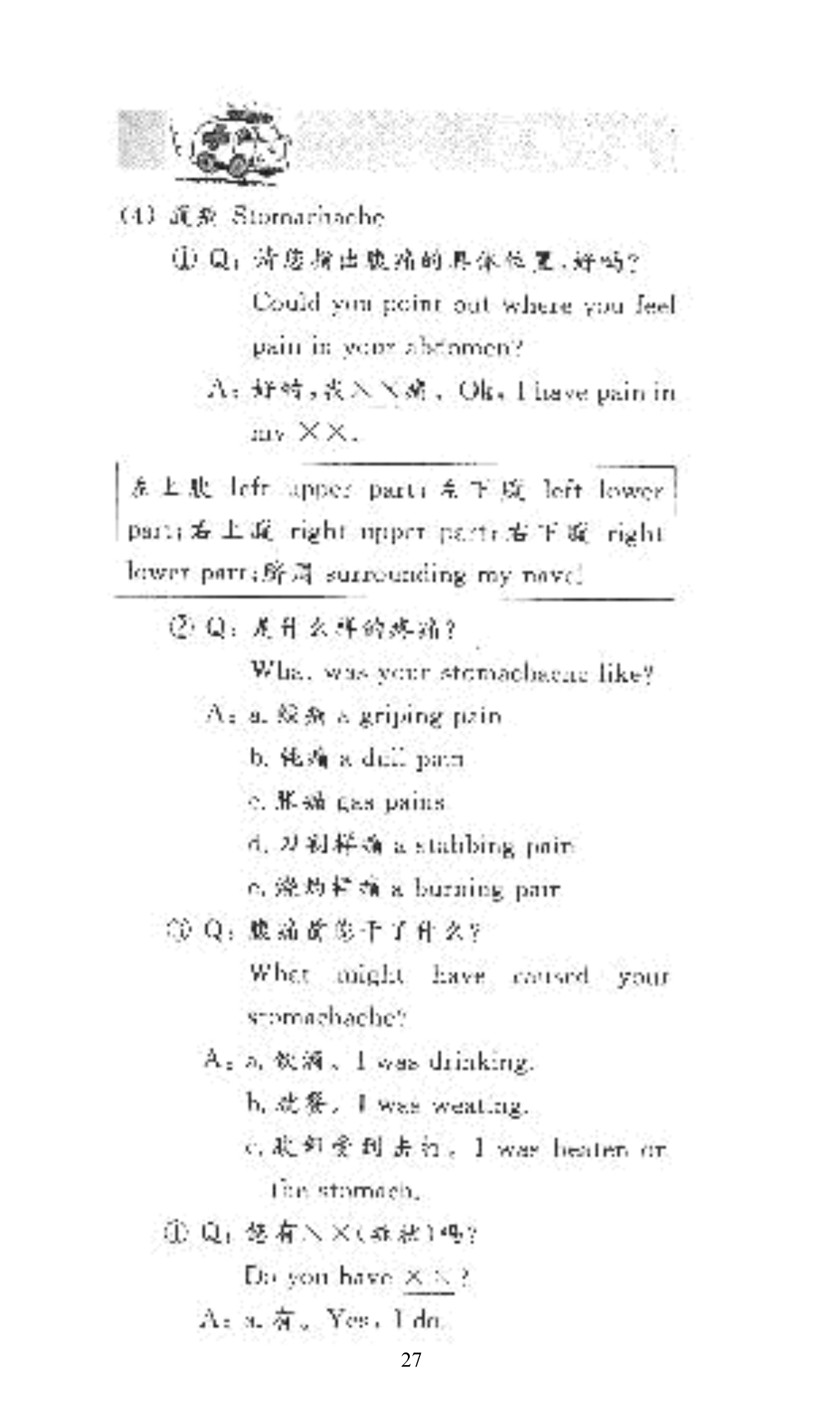 (4) 腹痛 Stomachache
① Q: 请您指出腹痛的具体位置,好吗?
Could you point out where you feel
pain in your abdomen?
A: 好的,我××痛。Ok, I have pain in
my ××.
左上腹 left upper part; 左下腹 left lower
part; 右上腹 right upper part; 右下腹 right
lower part; 脐周 surrounding my navel
② Q: 是什么样的疼痛?
What was your stomachache like?
A: a. 绞痛 a griping pain
b. 钝痛 a dull pain
c. 胀痛 gas pains
d. 刀割样痛 a stabbing pain
e. 烧灼样痛 a burning pain
③ Q: 腹痛前您干了什么?
What might have caused your
stomachache?
A: a. 饮酒。I was drinking.
b. 就餐。I was weating.
c. 腹部受到击打。I was beaten on
the stomach.
④ Q: 您有××(症状)吗?
Do you have ××?
A: a. 有。Yes, I do.
27